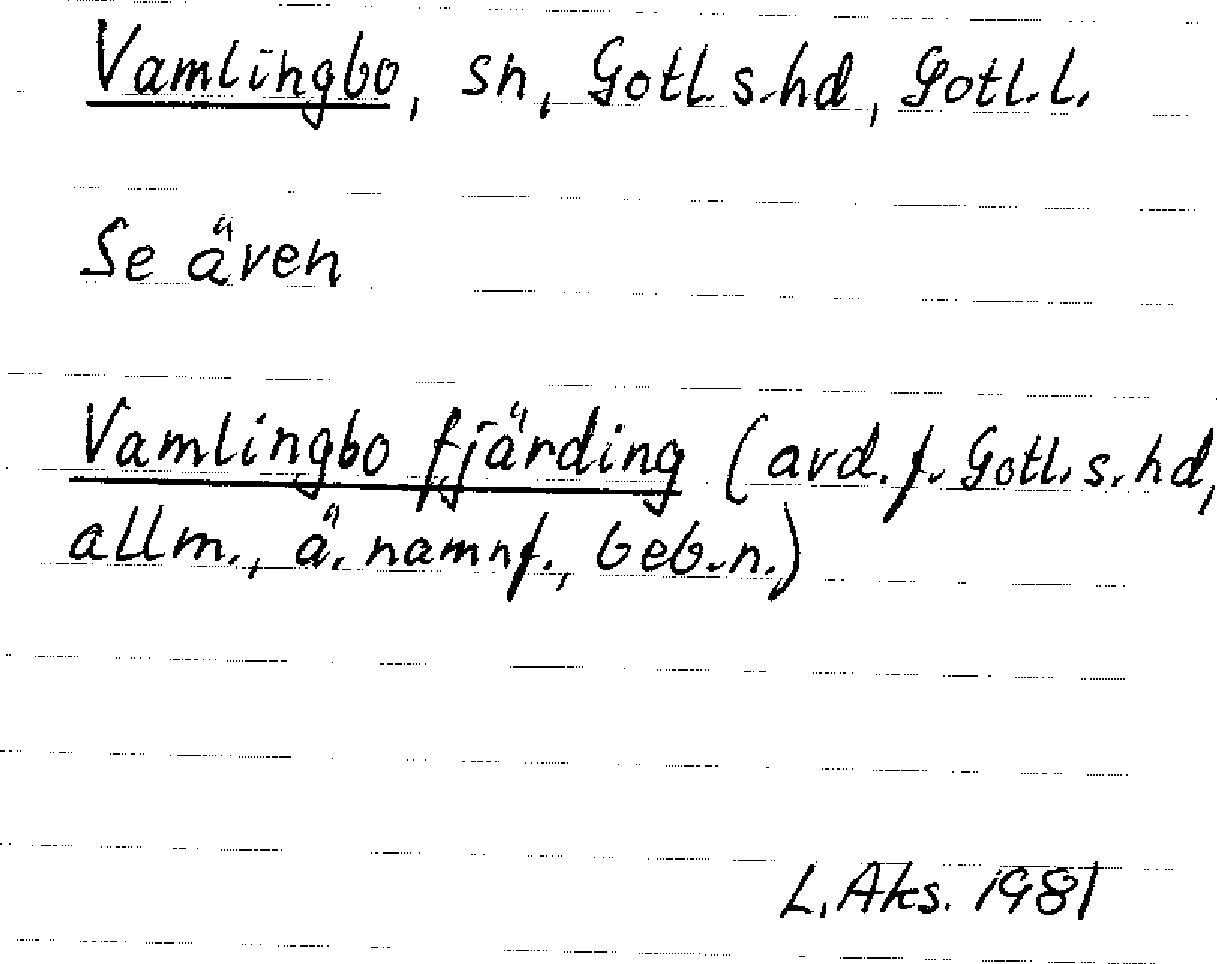 Vamlingbo, sn, Gotl. s. hd, Gotl. l.
Se även
Vamlingbo fjärding (avd. f. Gotl. s. hd,
allm., ä. namnf., beb.n.)
L. Aks. 1981